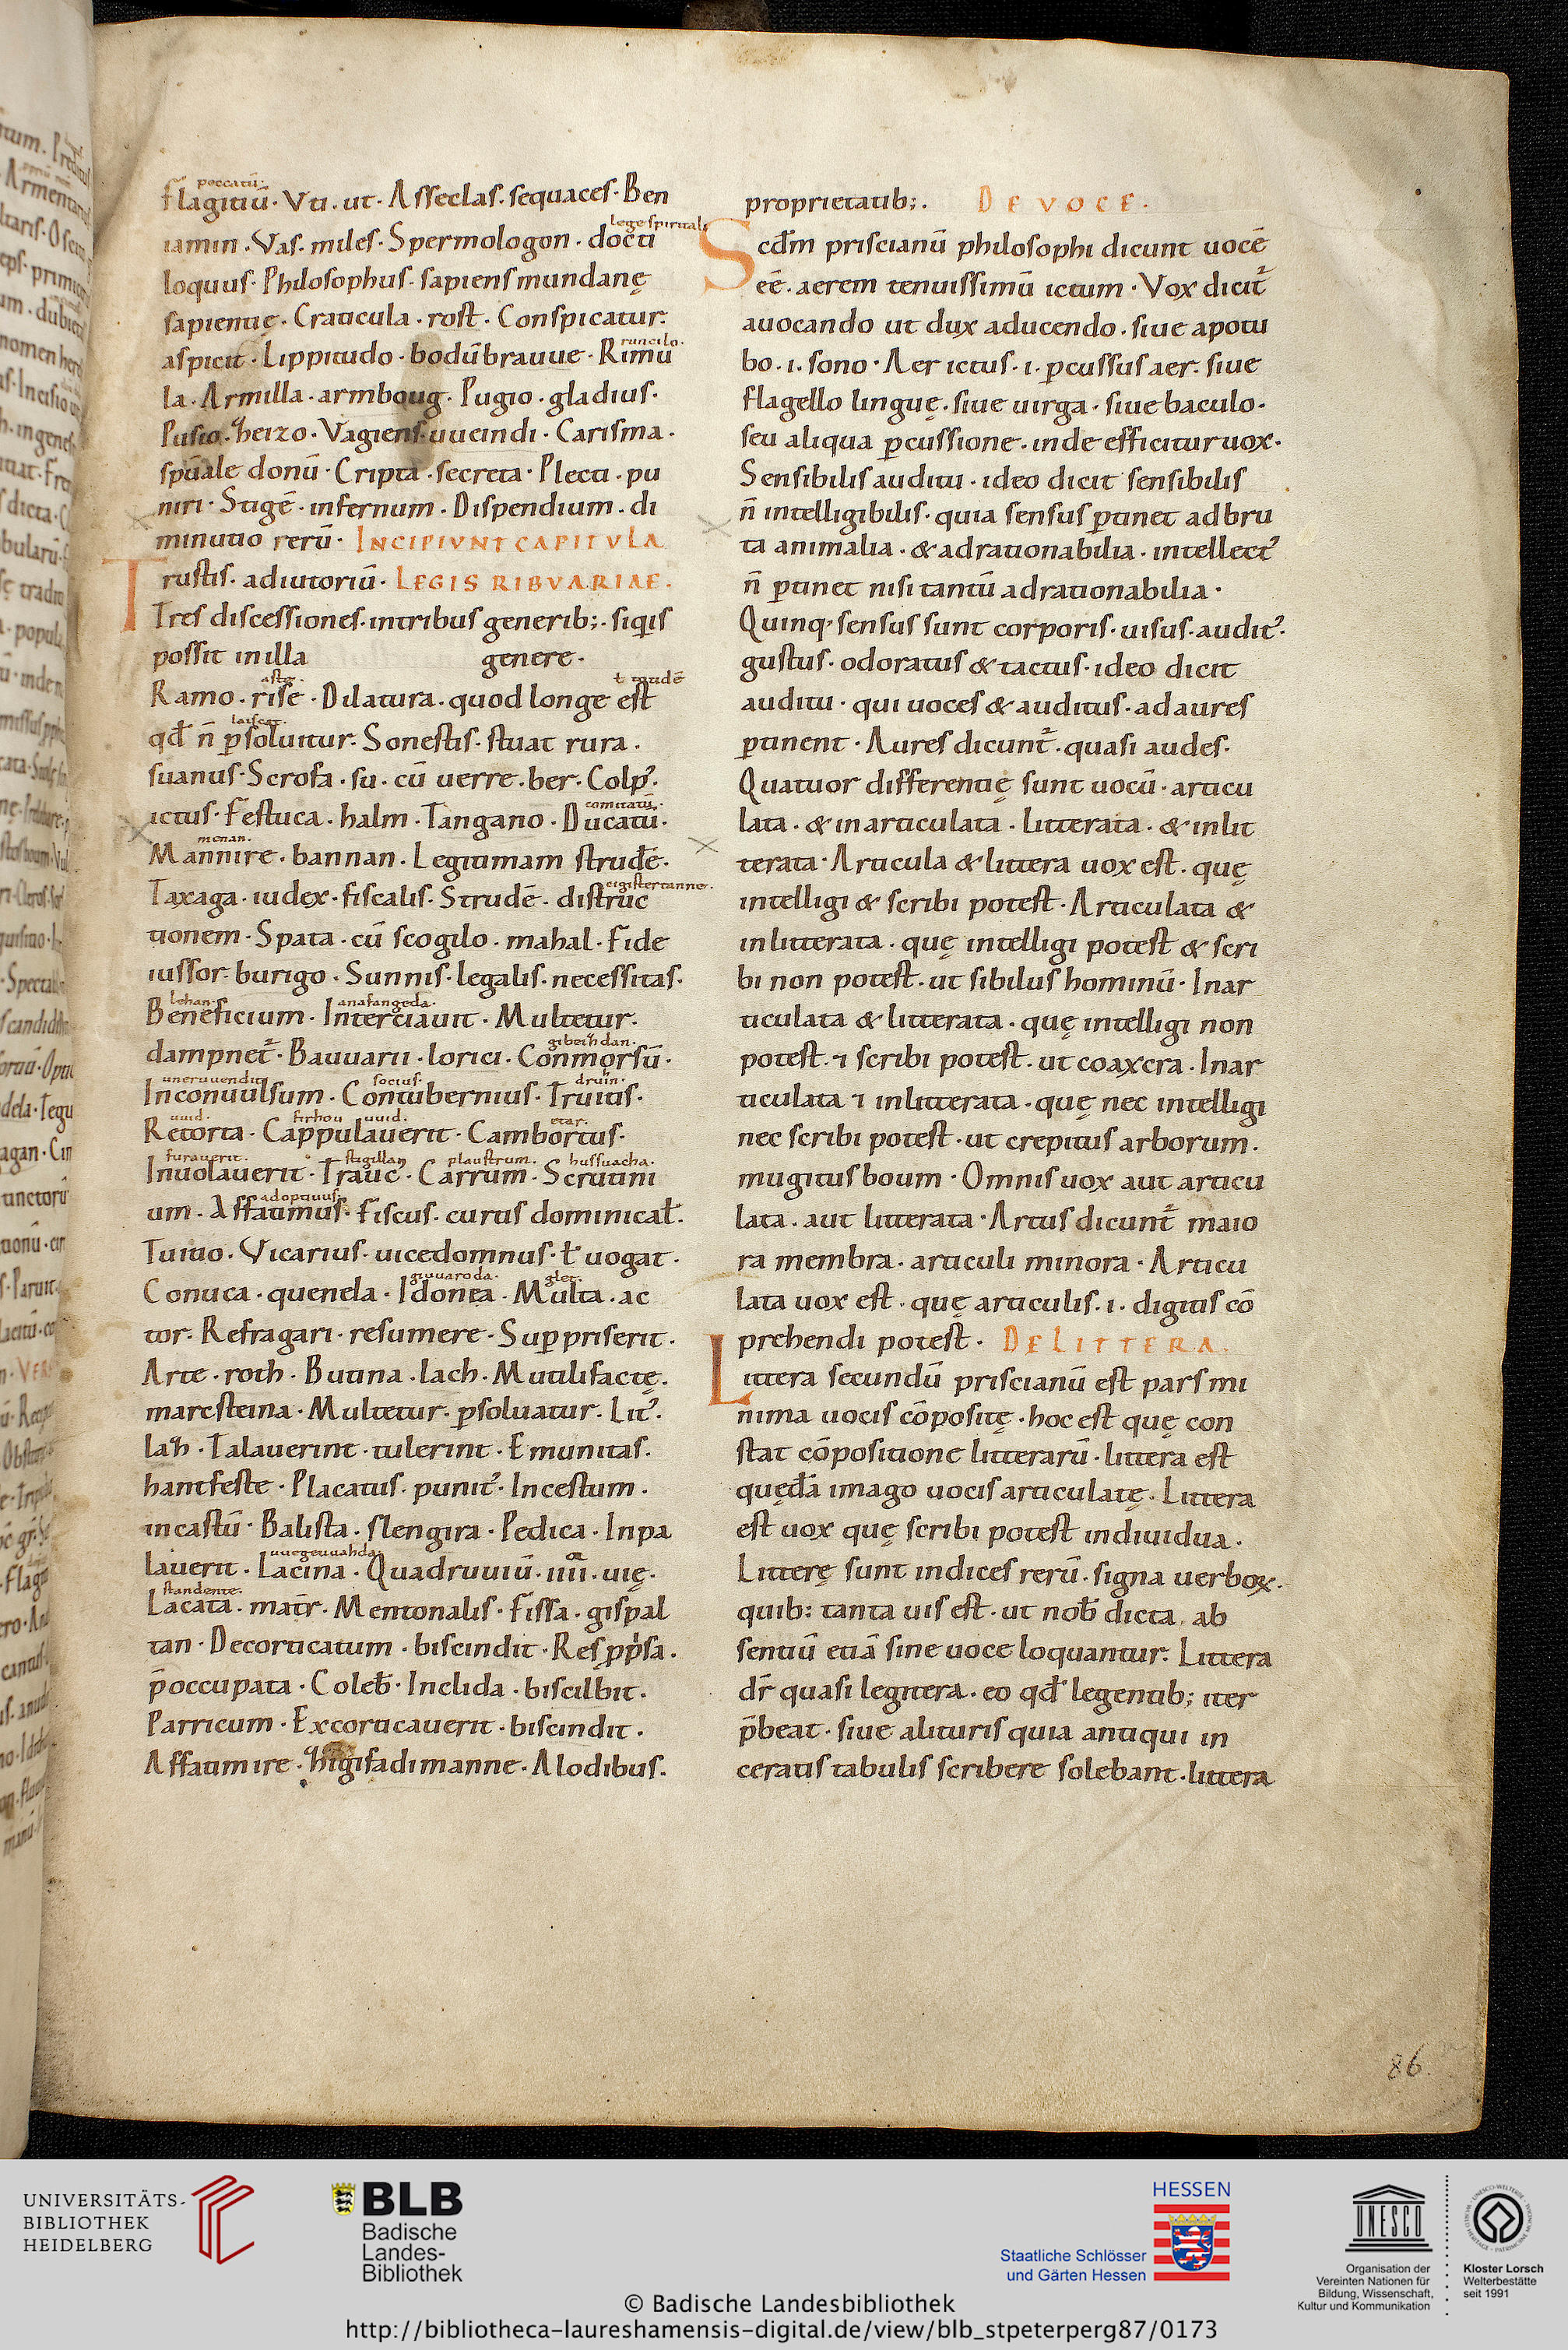 peccatū.
flagitiū · Vti . ut · Asseclas · sequaces · Ben
lege spirital
iamin · Vas · miles · Spermologon · docti
loquus · Philosophus · sapiens mundanę
sapientię · Craticula . rost · Conspicatur.
runcilo.
aspicit · Lippitudo · bodūbrauue · Rimu
la · Armilla · armboug · Pugio · gladius ·
Pusio · heizo · Vagiens uueindi · Carisma ·
spūale donū · Cripta · secreta · Plecti · pu
niri · Stigē · infernum · Dispendium · di
minutio rerū · INCIPIVNT CAPITVLA
Trustis · adiutoriū · LEGIS RIBVARIAE .
Tres discessiones · in tribus generib; · siq̄s
possit in illa genere ·
Ramo · rise · Dilatura · quod longe est
qd̄ n̄ p̄soluitur · Sonestis · stuat rura ·
suanus · Scrofa · su · cū uerre · ber · Colp̉ ·
comitatū.
ictus · Festuca · halm · Tangano · Ducatū ·
menan.
Mannire · bannan · Legitimam strudē ·
Taxaga · iudex · fiscalis · Strudē · distruc
tionem · Spata · cū scogilo · mahal · Fide
iussor · burigo · Sunnis · legalis · necessitas ·
lehan. anafangeda.
Beneficium · Interciauit · Multetur ·
gibeihdan.
dampnet̄ · Bauuarii · lorici · Conmorsū ·
socius. druhin.
Inconuulsum · Contubernius · Truitis ·
uuid. firhou uuid. etar.
Retorta · Cappulauerit · Cambortus ·
furauerit. stigillan plaustrum. hussuacha.
Inuolauerit · Trauc̉ · Carrum · Scrutini
adoptiuus.
um · Affatimus · Fiscus · curtis dominicat̄ ·
Tuitio · Vicarius · uicedomnus · ƚ uogat ·
giuuaroda. glet.
Conuca · quenela · Idonea · Multa · ac
tor · Refragari · resumere · Suppriserit ·
Arte · roth · Butina · lach · Mutilifactę ·
marcsteina · Multetur · p̄soluatur · Lit̉ ·
lah · Talauerint · tulerint · Emunitas ·
hantfeste · Placatus · punit̉ · Incestum ·
incastū · Balista · slengira · Pedica · Inpa
uuegeuuahda.
lauerit · Lacina · Quadruuiū · iiii · uię ·
standente.
Lacata · mat̄r · Mentonalis · fissa · gispal
tan · Decorticatum · biscindit · Res pp̄sa ·
p̄occupata · Coleb̄ · Inclida · biscilbit ·
Parricum · Excorticauerit · biscindit ·
Affatimire · higifadimanne · Alodibus ·
proprietatib; · DE VOCE .
Scd̄m priscianū philosophi dicunt uocē
eē · aerem tenuissimū ictum · Vox dicit̄
auocando ut dux aducendo · siue apotu
bo · i · sono · Aer ictus · i · p̄cussus aer · siue
flagello linguę · siue uirga · siue baculo ·
seu aliqua p̄cussione · inde efficitur uox ·
Sensibilis auditu · ideo dicit sensibilis
n̄ intelligibilis · quia sensus p̄tinet ad bru
ta animalia · & ad rationabilia · intellect̉
n̄ p̄tinet nisi tantū ad rationabilia ·
Quinq; sensus sunt corporis · uisus · audit̉ ·
gustus · odoratus & tactus · ideo dicit
auditu · qui uoces & auditus · ad aures
p̄tinent · Aures dicunt̄ · quasi audes ·
Quatuor differentię sunt uocū · articu
lata · & inarticulata · litterata · & inlit
terata · Articula & littera uox est · quę
intelligi & scribi potest · Articulata &
inlitterata · quę intelligi potest & scri
bi non potest · ut sibilus hominū · Inar
ticulata & litterata · quę intelligi non
potest · ⁊ scribi potest · ut coax cra · Inar
ticulata ⁊ inlitterata · quę nec intelligi
nec scribi potest · ut crepitus arborum ·
mugitus boum · Omnis uox aut articu
lata · aut litterata · Artus dicunt̄ maio
ra membra · articuli minora · Articu
lata uox est · quę articulis · i · digitis cō
prehendi potest · DE LITTERA .
Littera secundū priscianū est pars mi
nima uocis cōpositę · hoc est quę con
stat cōpositione litterarū · littera est
quędā imago uocis articulatę · Littera
est uox quę scribi potest indiuidua ·
Litterę sunt indices rerū · signa uerboꝝ ·
quib: tanta uis est · ut nob̄ dicta ab
sentiū etiā sine uoce loquantur · Littera
dr̄ quasi legitera · eo qd̄ legentib; iter
p̄beat · siue a lituris quia antiqui in
ceratis tabulis scribere solebant · littera
86
UNIVERSITÄTS-
BIBLIOTHEK
HEIDELBERG
BLB
Badische
Landes-
Bibliothek
HESSEN
Staatliche Schlösser
und Gärten Hessen
UNESCO
Organisation der
Vereinten Nationen für
Bildung, Wissenschaft,
Kultur und Kommunikation
Kloster Lorsch
Welterbestätte
seit 1991
© Badische Landesbibliothek
http://bibliotheca-laureshamensis-digital.de/view/blb_stpeterperg87/0173